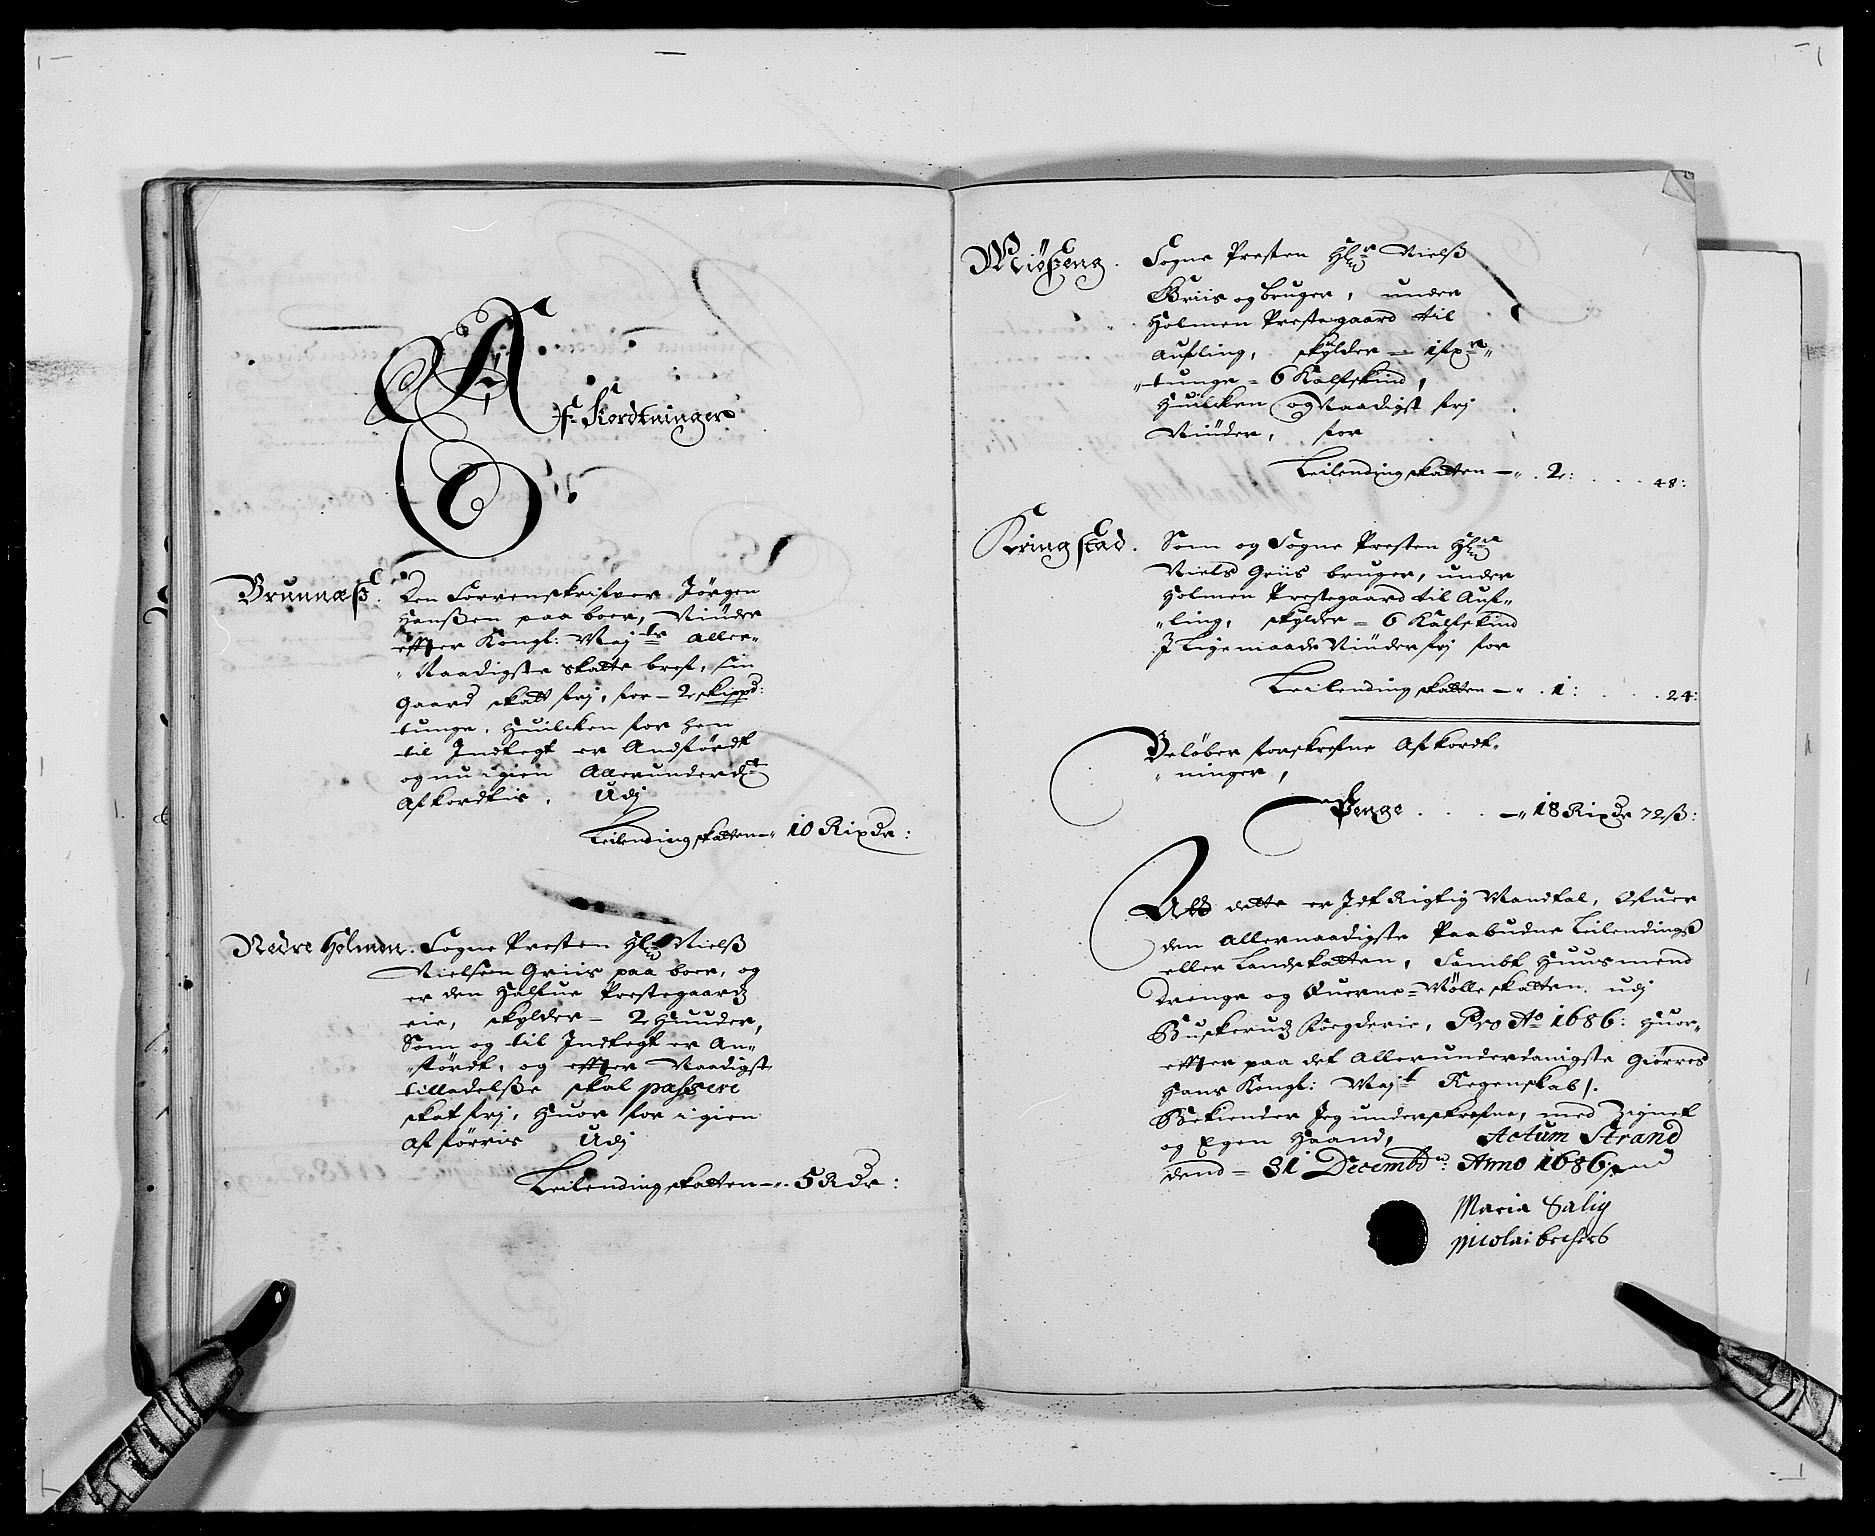 Af Kordtninger
Brunnæß. Den Sorrenskrifver Jørgen
Hanßen paa boer, Niuder
effter Kongl: Maj.ts Aller-
Naadigste skatte bref, sin
Gaard skatt frj, for - 2 skippd:
tunge, Huilcken for hen
til Indtegt er Andførdt
og nu igien Allerunderd.st
Afkordtis, Udj
Leilendingskatten - 10 Rixdr:
Nedre Holmen. Sogne Presten Hr. Nielß
Nielsen Griis paa boer, og
er den Halfue Prestegaardz
eie, skylder - 2 Huuder,
Som og til Indtegt er An-
førdt, og effter Naadigst
tilladelsße skal passere
skat frj, Huor for igien
Afførris Udj
Leilendingskatten - 5 Rdr:
Miøßeng. Sogne Presten Hr. Nielß
Griis og bruger, under
Holmen Prestegaard til
Aufling, skylder - 1 fxr
tunge = 6 Kalfskind,
Huilcken og Naadigst frj
Niuder, for
Leilendingskatten - 2: 48:
Kringstad. Som og Sogne Presten Hr.
Niels Griis bruger, under
Holmen Prestegaard til Auf-
ling, skylder = 6 Kalfskind
I Ligemaade Niuder frj for
Leilendingskatten - 1: 24:
Beløber forskrefne Afkordt-
ninger,
Penge - 18 Rixdr 72 ß:
Att dette er Idt Rigtig Mandtal, Ofuer
den Allernaadigste Paabudne Leilendingß
eller Landskatten, Sambt Huusmend
Drenge og Querne-Mølle skatten, udj
Buskerudz Foegderie, Pro Ao 1686: Huor-
effter paa det Allerunderdanigste Giørres
Hans Kongl: Maj.t Regenskab /.
Bekiender Jeg underskrefne, med Zignet
og Egen Haand, Actum Strand
dend = 31 Decembr: Anno 1686
Maria Salig
Nicolai bechers